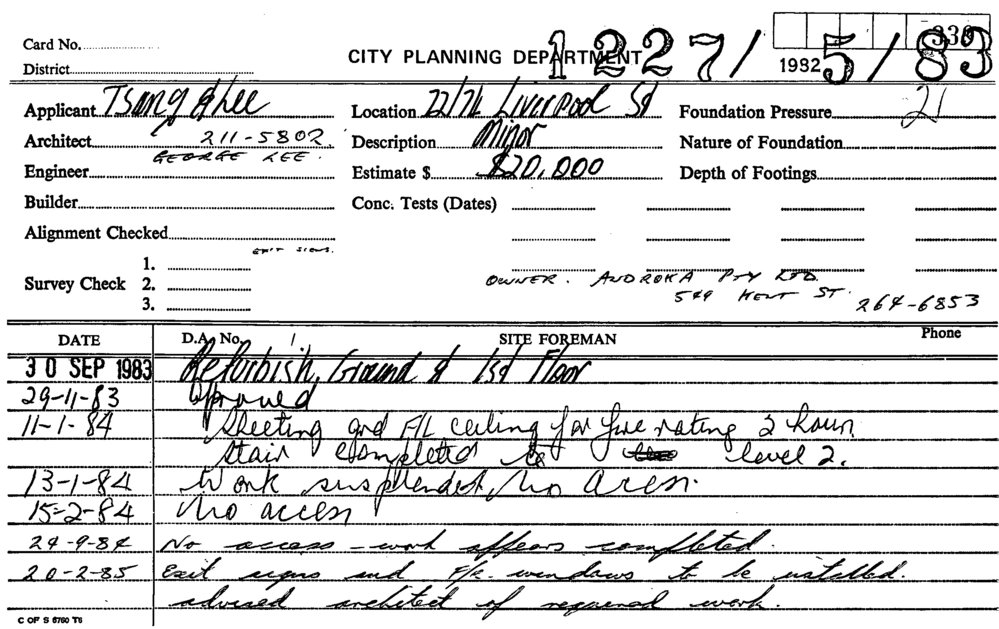 Card No.
District
CITY PLANNING DEPARTMENT
1227/5/83
330
1982
Applicant Tsang & Lee
Location 72/74 Liverpool St
Foundation Pressure 21
Architect 211-5802
GEORGE LEE.
Description Minor
Nature of Foundation
Engineer
Estimate $ $20,000
Depth of Footings
Builder
Conc. Tests (Dates)
Alignment Checked
EXIT SIGNS.
Survey Check 1.
2.
3.
OWNER. ANDROKA PTY LTD.
549 KENT ST. 264-6853
DATE D.A. No. SITE FOREMAN Phone
30 SEP 1983 Refurbish, Ground & 1st Floor
29-11-83 Approved
11-1-84 Sheeting and F/L ceiling for fire rating 2 hour
stair completed to level 2.
13-1-84 Work suspended, No access.
15-2-84 No access
24-9-84 No access - work appears completed.
20-2-85 Exit signs and F/R. windows to be installed.
advised architect of required work.
C OF S 6760 T6